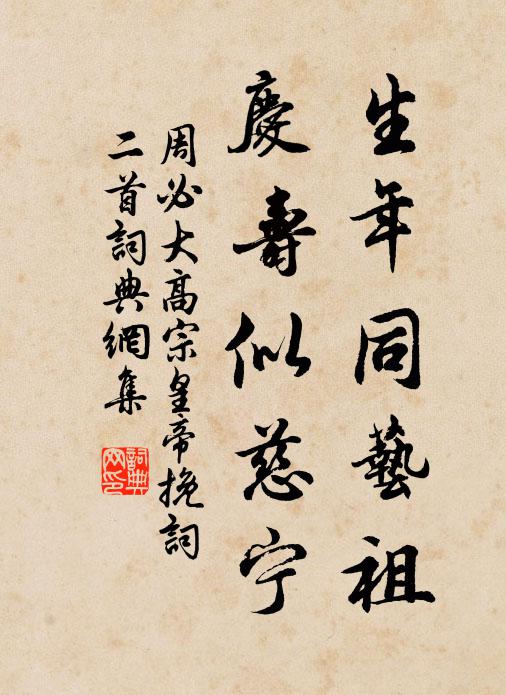 生年同藝祖
慶壽似慈宁
周必大高宗皇帝挽詞
二首詞典網集
詞典網印